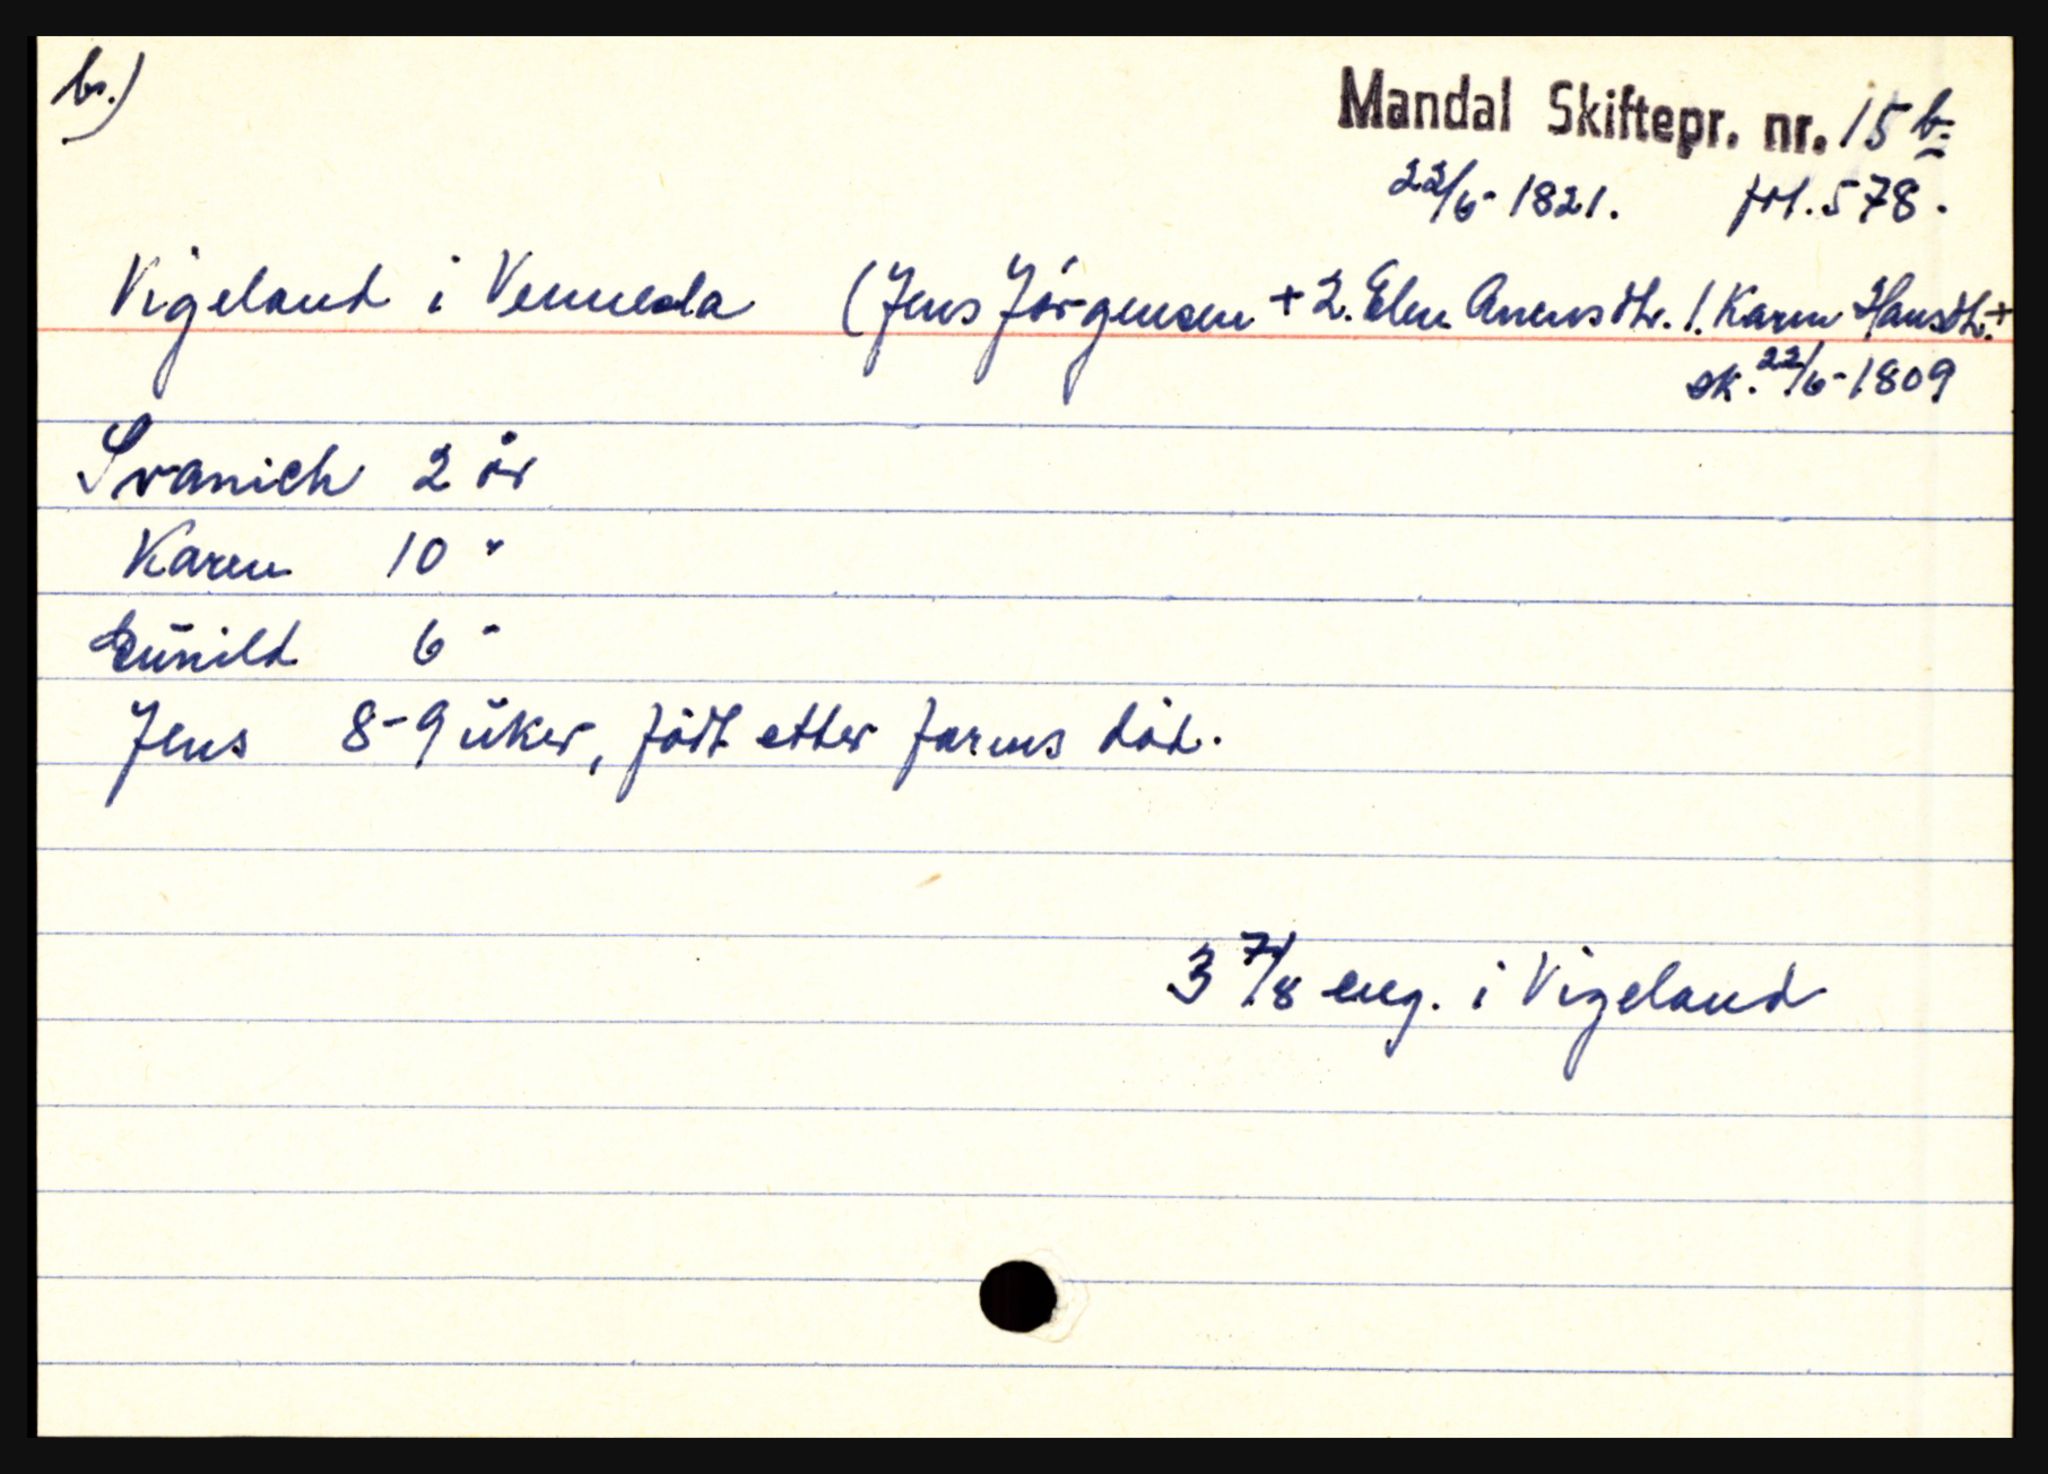 b.)
Mandal Skiftepr. nr. 15 b.
22/6-1821. fol. 578.
Vigeland i Vennesla (Jens Jörgensen + 2. Elen Anensdtr. 1. Karen Hansdtr. +
sk. 22/6-1809
Svanich 2 år
Karen 10 "
Gunild 6 "
Jens 8-9 uker, födt etter farens död.
3 7/8 eng. i Vigeland